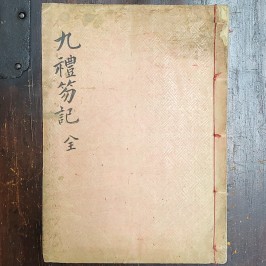 九禮笏記 全